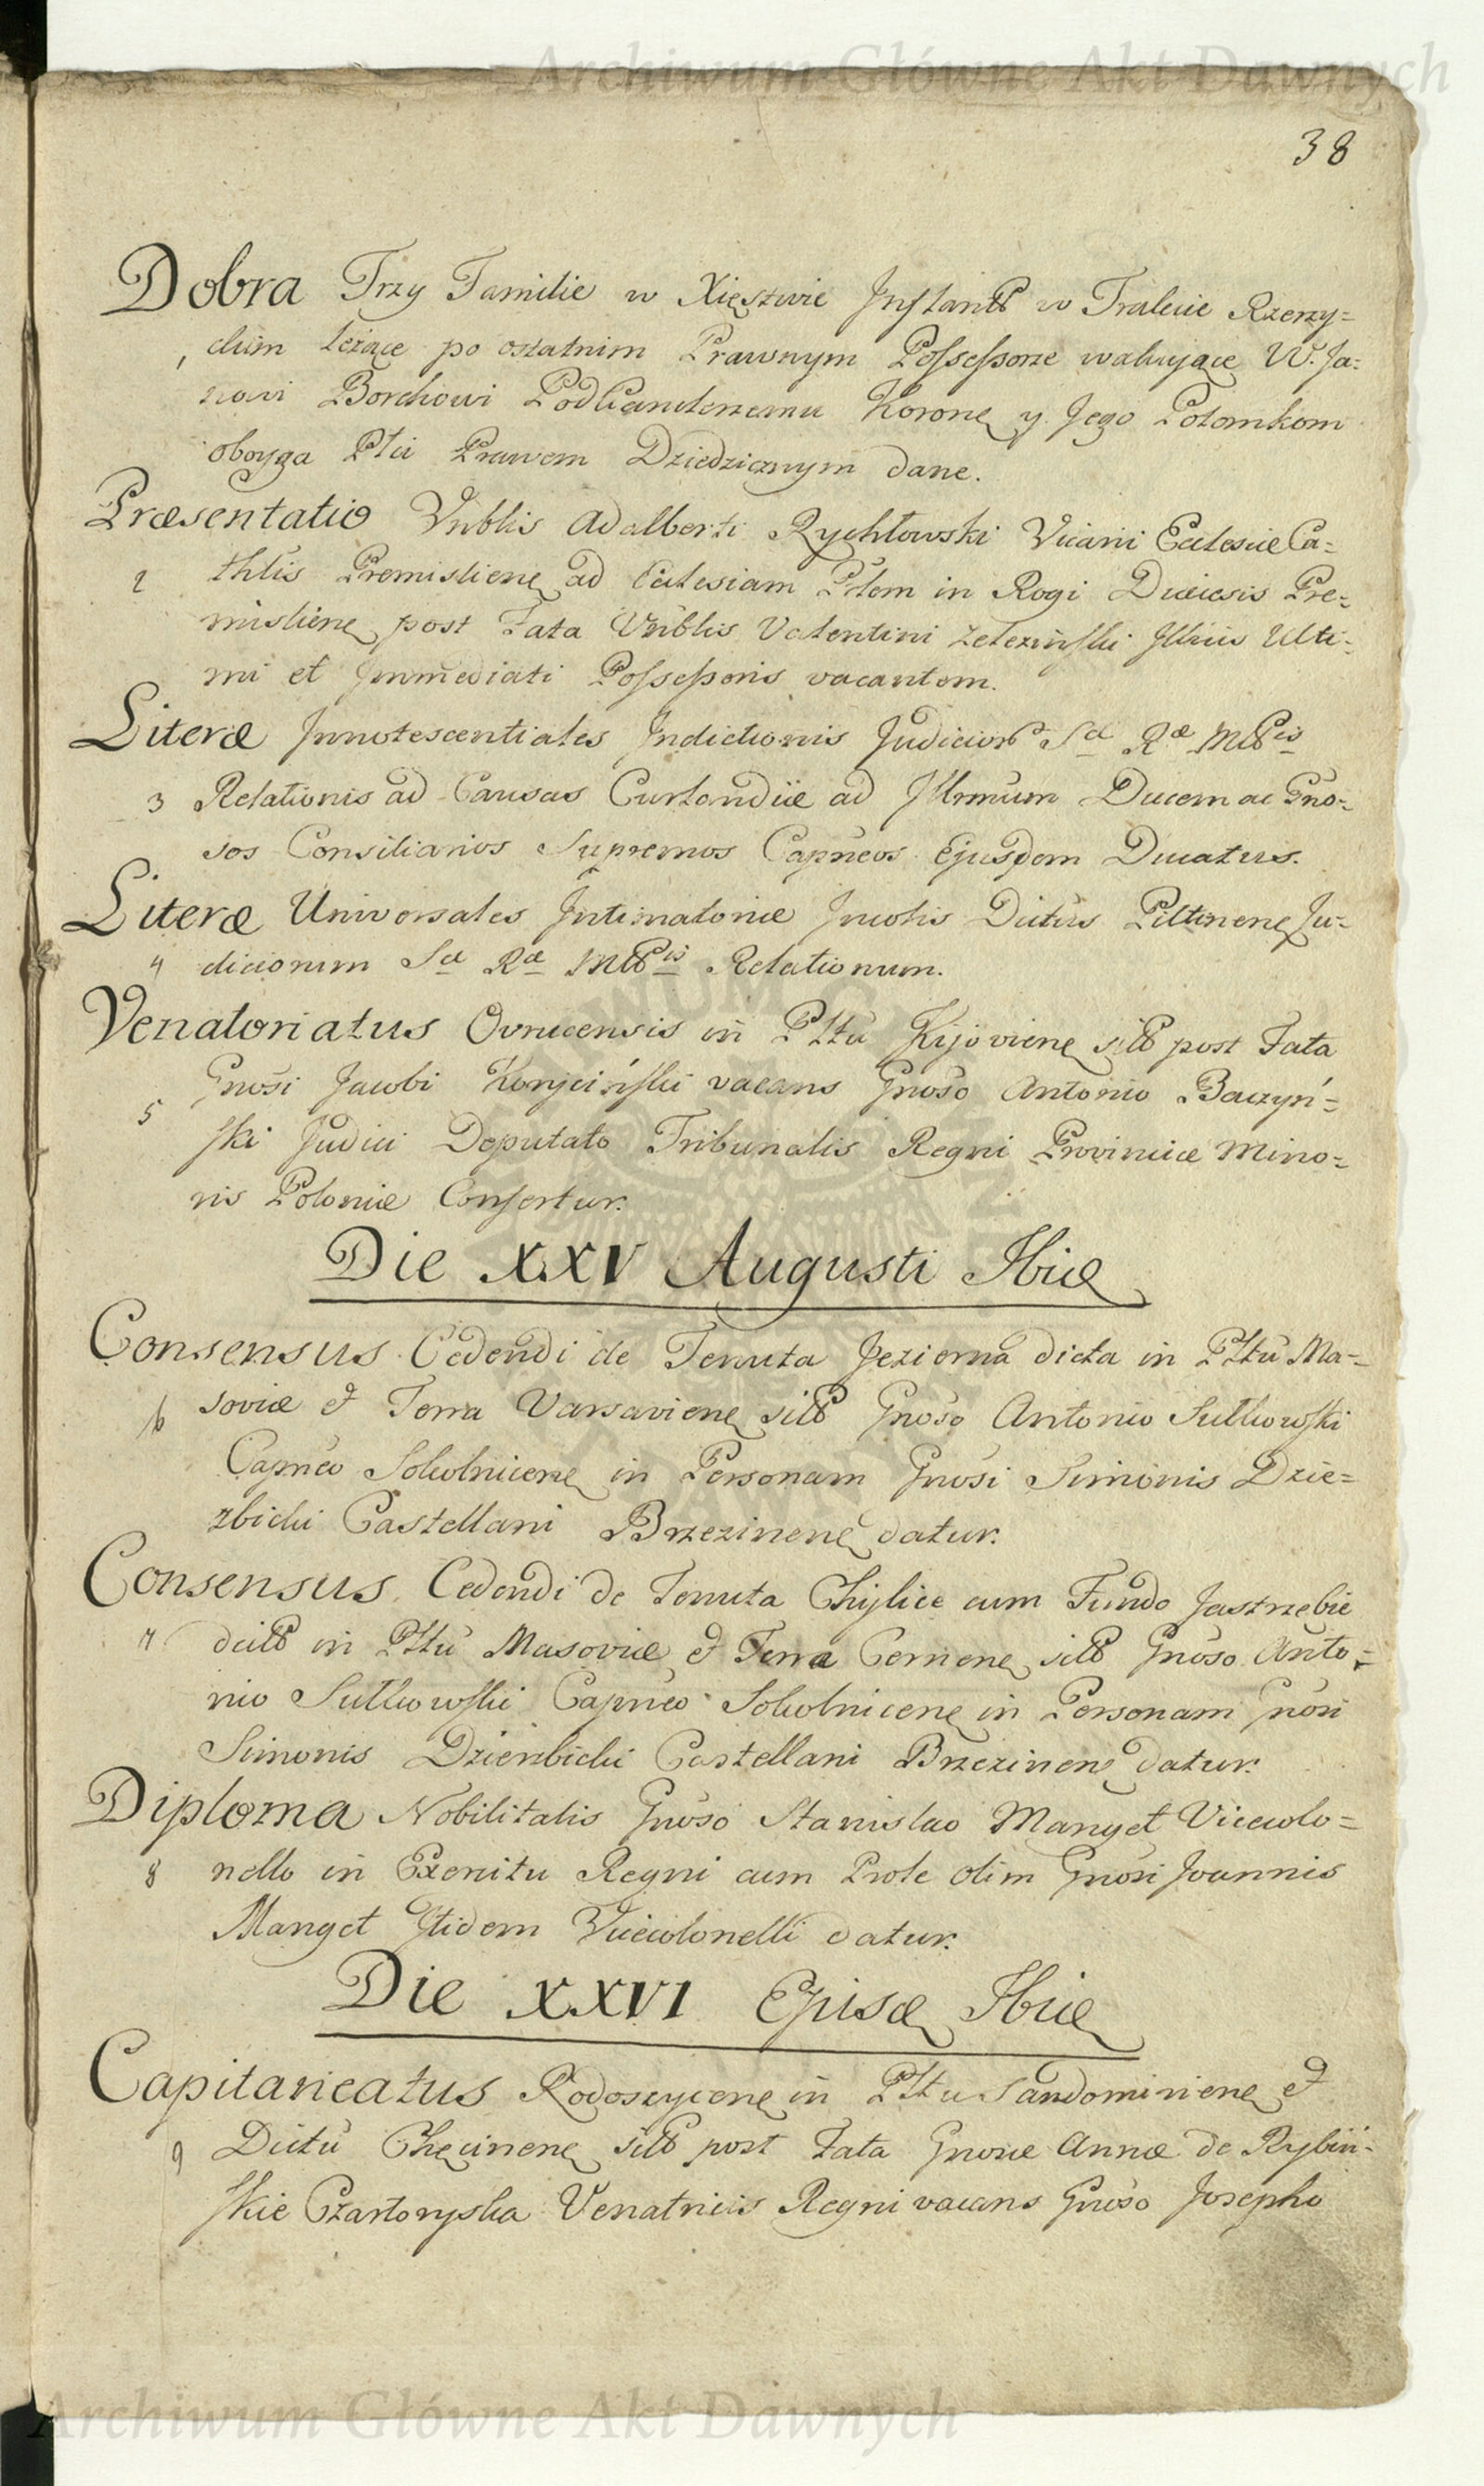 Archiwum Główne Akt Dawnych
38
Dobra Trzy Familie w Xięstwie Inflantt w Trakcie Rzerzy=
1 ckim leżące po ostatnim Prawnym Possessorze wakujące W. Ja=
nowi Borchowi PodKanclerzemu Koronę y Jego Potomkom
oboyga Płci Prawem Dziedzicznym dane.
Præsentatio Vnblis Adalberti Rychłowski Vicarii Ecclesiæ Ca=
2 thlis Premisliene ad Ecclesiam Plem in Rogi Diæcesis Pre=
misliene post Fata Vnblis Valentini Zelezinski Illius Ulti=
mi et Immediati Possessoris vacantem.
Literæ Innotescentiales Indictionis Judicior Sæ Ræ Mttis
3 Relationis ad Causas Curlandiæ ad Illrmum Ducem ac Gno=
sos Consiliarios Supremos Capneos Ejusdem Ducatus.
Literæ Universales Intimatoriæ Incolis Dictus Piltinene Ju=
4 diciorum Sæ Ræ Mttis Relationum.
Venatoriatus Ovrucensis in Pltu Kijoviene sitt post Fata
Gnosi Jacobi vacans Gnoso Antonio Baczyń=
5 ski Judici Deputato Tribunalis Regni Provinciæ Mino=
ris Poloniæ Confertur.
Die XXV Augusti Ibid
Consensus Cedendi de Tenuta Jezierna dicta in Pltu Ma=
6 soviæ et Terra Varsaviene sitt Gnoso Antonio Sułkowski
Capneo Sokolnicene in Personam Gnosi Simonis Dzie=
rzbicki Castellani Brzezinene datur.
Consensus Cedendi de Tenuta Chylice cum Fundo Jastrzębie
7 dctt in Pltu Masoviæ et Terra Cernene sitt Gnoso Anto=
nio Sułkowski Capneo Sokolnicene in Personam Gnosi
Simonis Dzierzbicki Castellani Brzezinene datur.
Diploma Nobilitatis Gnoso Stanislao Manget Vicecolo=
8 nello in Exercitu Regni cum Prole olim Gnosi Joannis
Manget Itidem Vicecolonelli datur.
Die XXVI Ejusd Ibid
Capitaneatus Radoszycene in Pltu Sandomiriene et
9 Dictu Chęcinene sitt post Fata Gnosæ Annæ de Rybiń=
skie Czartoryska Venatricis Regni vacans Gnoso Josepho
Archiwum Główne Akt Dawnych